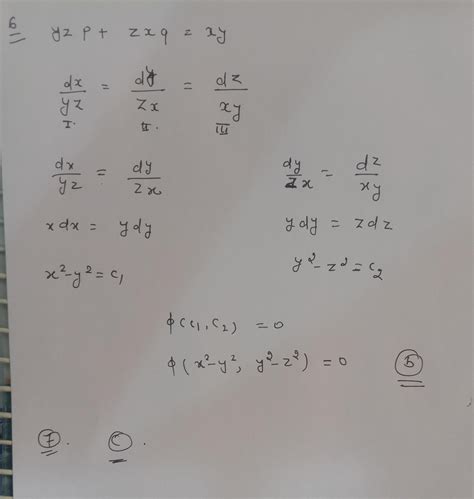 6 yzp + zxq = xy
dx/yz = dy/zx = dz/xy
I. II. III
dx/yz = dy/zx dy/zx = dz/xy
xdx = ydy ydy = zdz
x²-y² = c₁ y²-z² = c₂
ϕ(c₁, c₂) = 0
ϕ(x²-y², y²-z²) = 0 (5)
(7). (C).